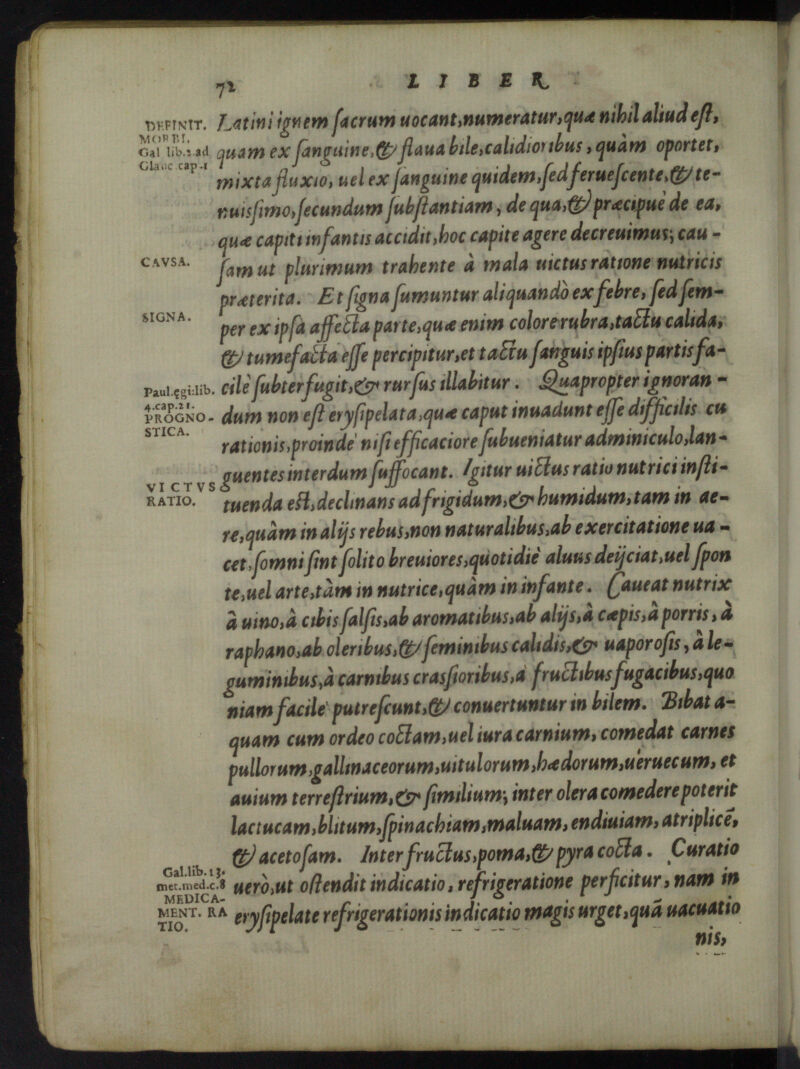 72 LIBER
DEFINIT. Latini ignem sacrum uocant, numeratur, quæ nihil aliud est,
MORBI.
Gal lib.2.ad quam ex sanguine, & flaua bile, calidioribus, quàm oportet,
Glauc cap.1
mixta fluxio, uel ex sanguine quidem, sed feruescente, & te-
nuissimo, secundum substantiam, de qua, & præcipuè de ea,
quæ capiti infantis accidit, hoc capite agere decreuimus; cau-
CAVSA. sam ut plurimum trahente à mala uictus ratione nutricis
præterita. Et signa sumuntur aliquandò ex febre, sed sem-
SIGNA.
per ex ipsa affecta parte, quæ enim colore rubra, tactu calida,
& tumefacta esse percipitur, et tactu sanguis ipsius partis fa-
Paul.ęgi.lib. cilè subterfugit, & rursus illabitur. Quapropter ignoran-
4.cap.21.
PROGNO- dum non est erysipelata, quæ caput inuadunt esse difficilis cu
STICA.
rationis, proindè nisi efficaciore subueniatur adminiculo, lan-
guentes interdum suffocant. Igitur uictus ratio nutrici insti-
VICTVS
RATIO. tuenda est, declinans ad frigidum, & humidum, tam in ae-
re, quàm in alijs rebus, non naturalibus, ab exercitatione ua-
cet, somni sint solito breuiores, quotidiè aluus deijciat, uel spon
te, uel arte, tàm in nutrice, quàm in infante. Caueat nutrix
à uino, à cibis salsis, ab aromatibus, ab alijs, à cæpis, à porris, à
raphano, ab oleribus, & seminibus calidis, & uaporosis, à le-
guminibus, à carnibus crassioribus, à fructibus fugacibus, quo
niam facilè putrescunt, & conuertuntur in bilem. Bibat a-
quam cum ordeo coctam, uel iura carnium, comedat carnes
pullorum, gallinaceorum, uitulorum, hædorum, ueruecum, et
auium terrestrium, & similium; inter olera comedere poterit
lactucam, blitum, spinachiam, maluam, endiuiam, atriplicē,
& acetosam. Inter fructus, poma, & pyra cocta. Curatio
Gal.lib.13.
met.med.c.8 uerò, ut ostendit indicatio, refrigeratione perficitur, nam in
MEDICA-
MENT. RA erysipelate refrigerationis indicatio magis urget, quā uacuatio
TIO.
nis,